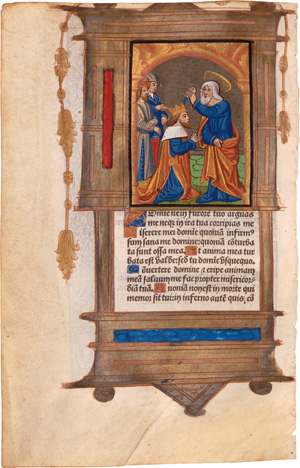 Domine ne in furore tuo arguas
me neqʒ in ira tua corripias me
iserere mei domine quoniā infirmꝰ
sum sana me domine: quoniā cōturba
ta sunt ossa mea. Et anima mea tur
bata est valde: sed tu domine vsquequo.
Conuertere domine ⁊ eripe animam
meā saluum me fac propter misericor
diā tuā. Quoniā non est in morte qui
memor sit tui: in inferno autē quis cō